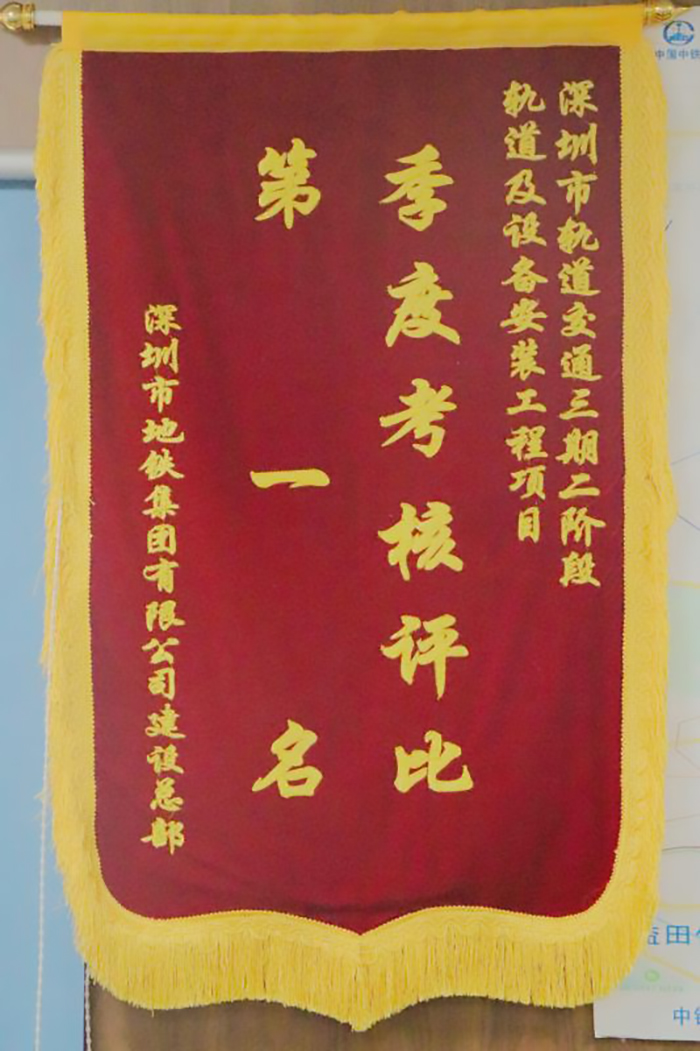 深圳市轨道交通三期二阶段
轨道及设备安装工程项目
季度考核评比
第一名
深圳市地铁集团有限公司建设总部
中国中铁
益田
中铁